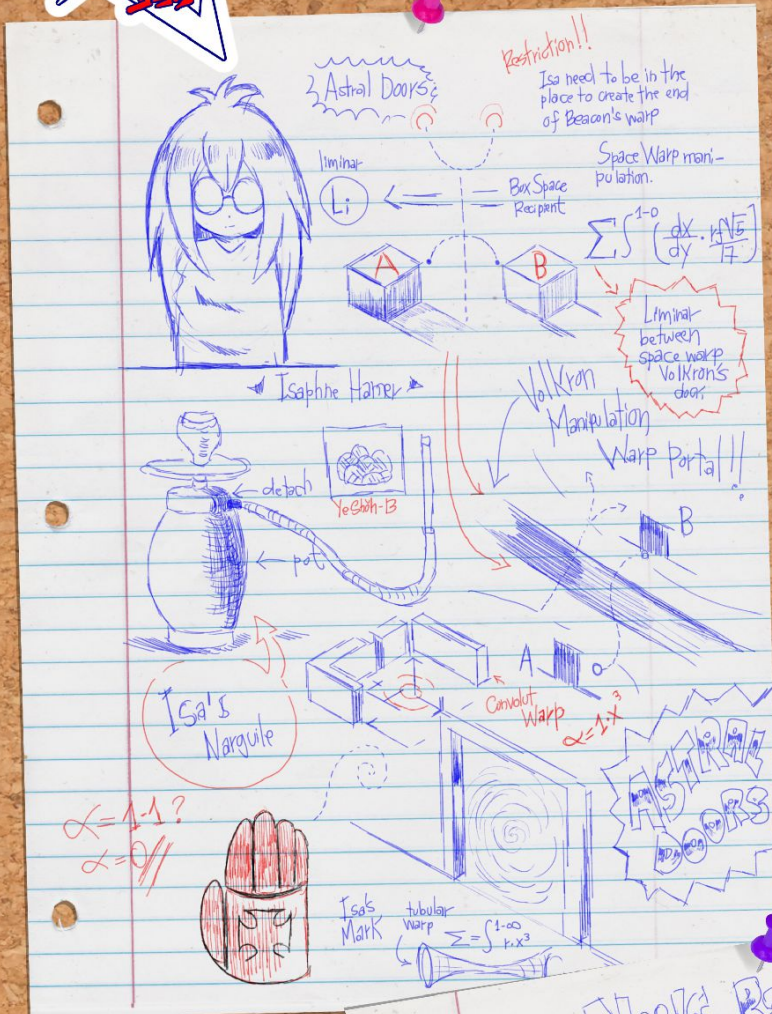 Astral Doors
Restriction!!
Isa need to be in the
place to create the end
of Beacon's warp
Space Warp mani-
pulation.
liminar
Li
Box Space
Recipient
A
B
Liminar
between
space warp
VolKron's
door
Isaphne Hamer
VolKron
Manipulation
Warp Portal!!
detach
YeShoh-B
pot
B
A
Convolut
Warp
α=1·x³
Isa's
Narguile
ASTRAL
DOOORS
α=1-1?
α=0//
Isa's
Mark
tubular
warp